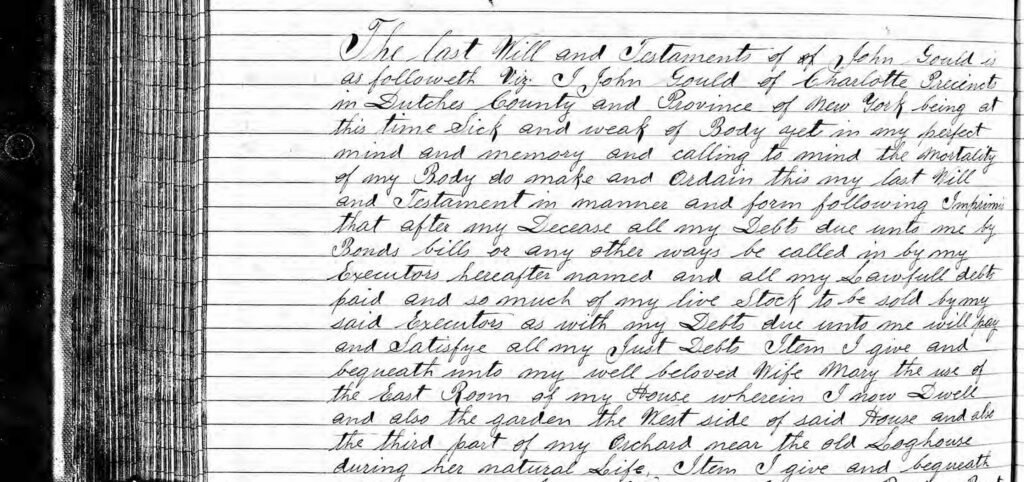 The last Will and Testaments of of John Gould is
as followeth Viz. I John Gould of Charlotte Precinct
in Dutches County and Province of New York being at
this time Sick and weak of Body yet in my perfect
mind and memory and calling to mind the Mortality
of my Body do make and Ordain this my last Will
and Testament in manner and form following Imprimis
that after my Decease all my Debts due unto me by
Bonds bills or any other ways be called in by my
Executors hereafter named and all my Lawfull debts
paid and so much of my live Stock to be sold by my
said Executors as with my Debts due unto me will pay
and Satisfye all my Just Debts Item I give and
bequeath unto my well beloved Wife Mary the use of
the East Room of my House wherein I now Dwell
and also the garden the West side of said House and also
the third part of my Orchard near the old Loghouse
during her natural Life. Item I give and bequeath